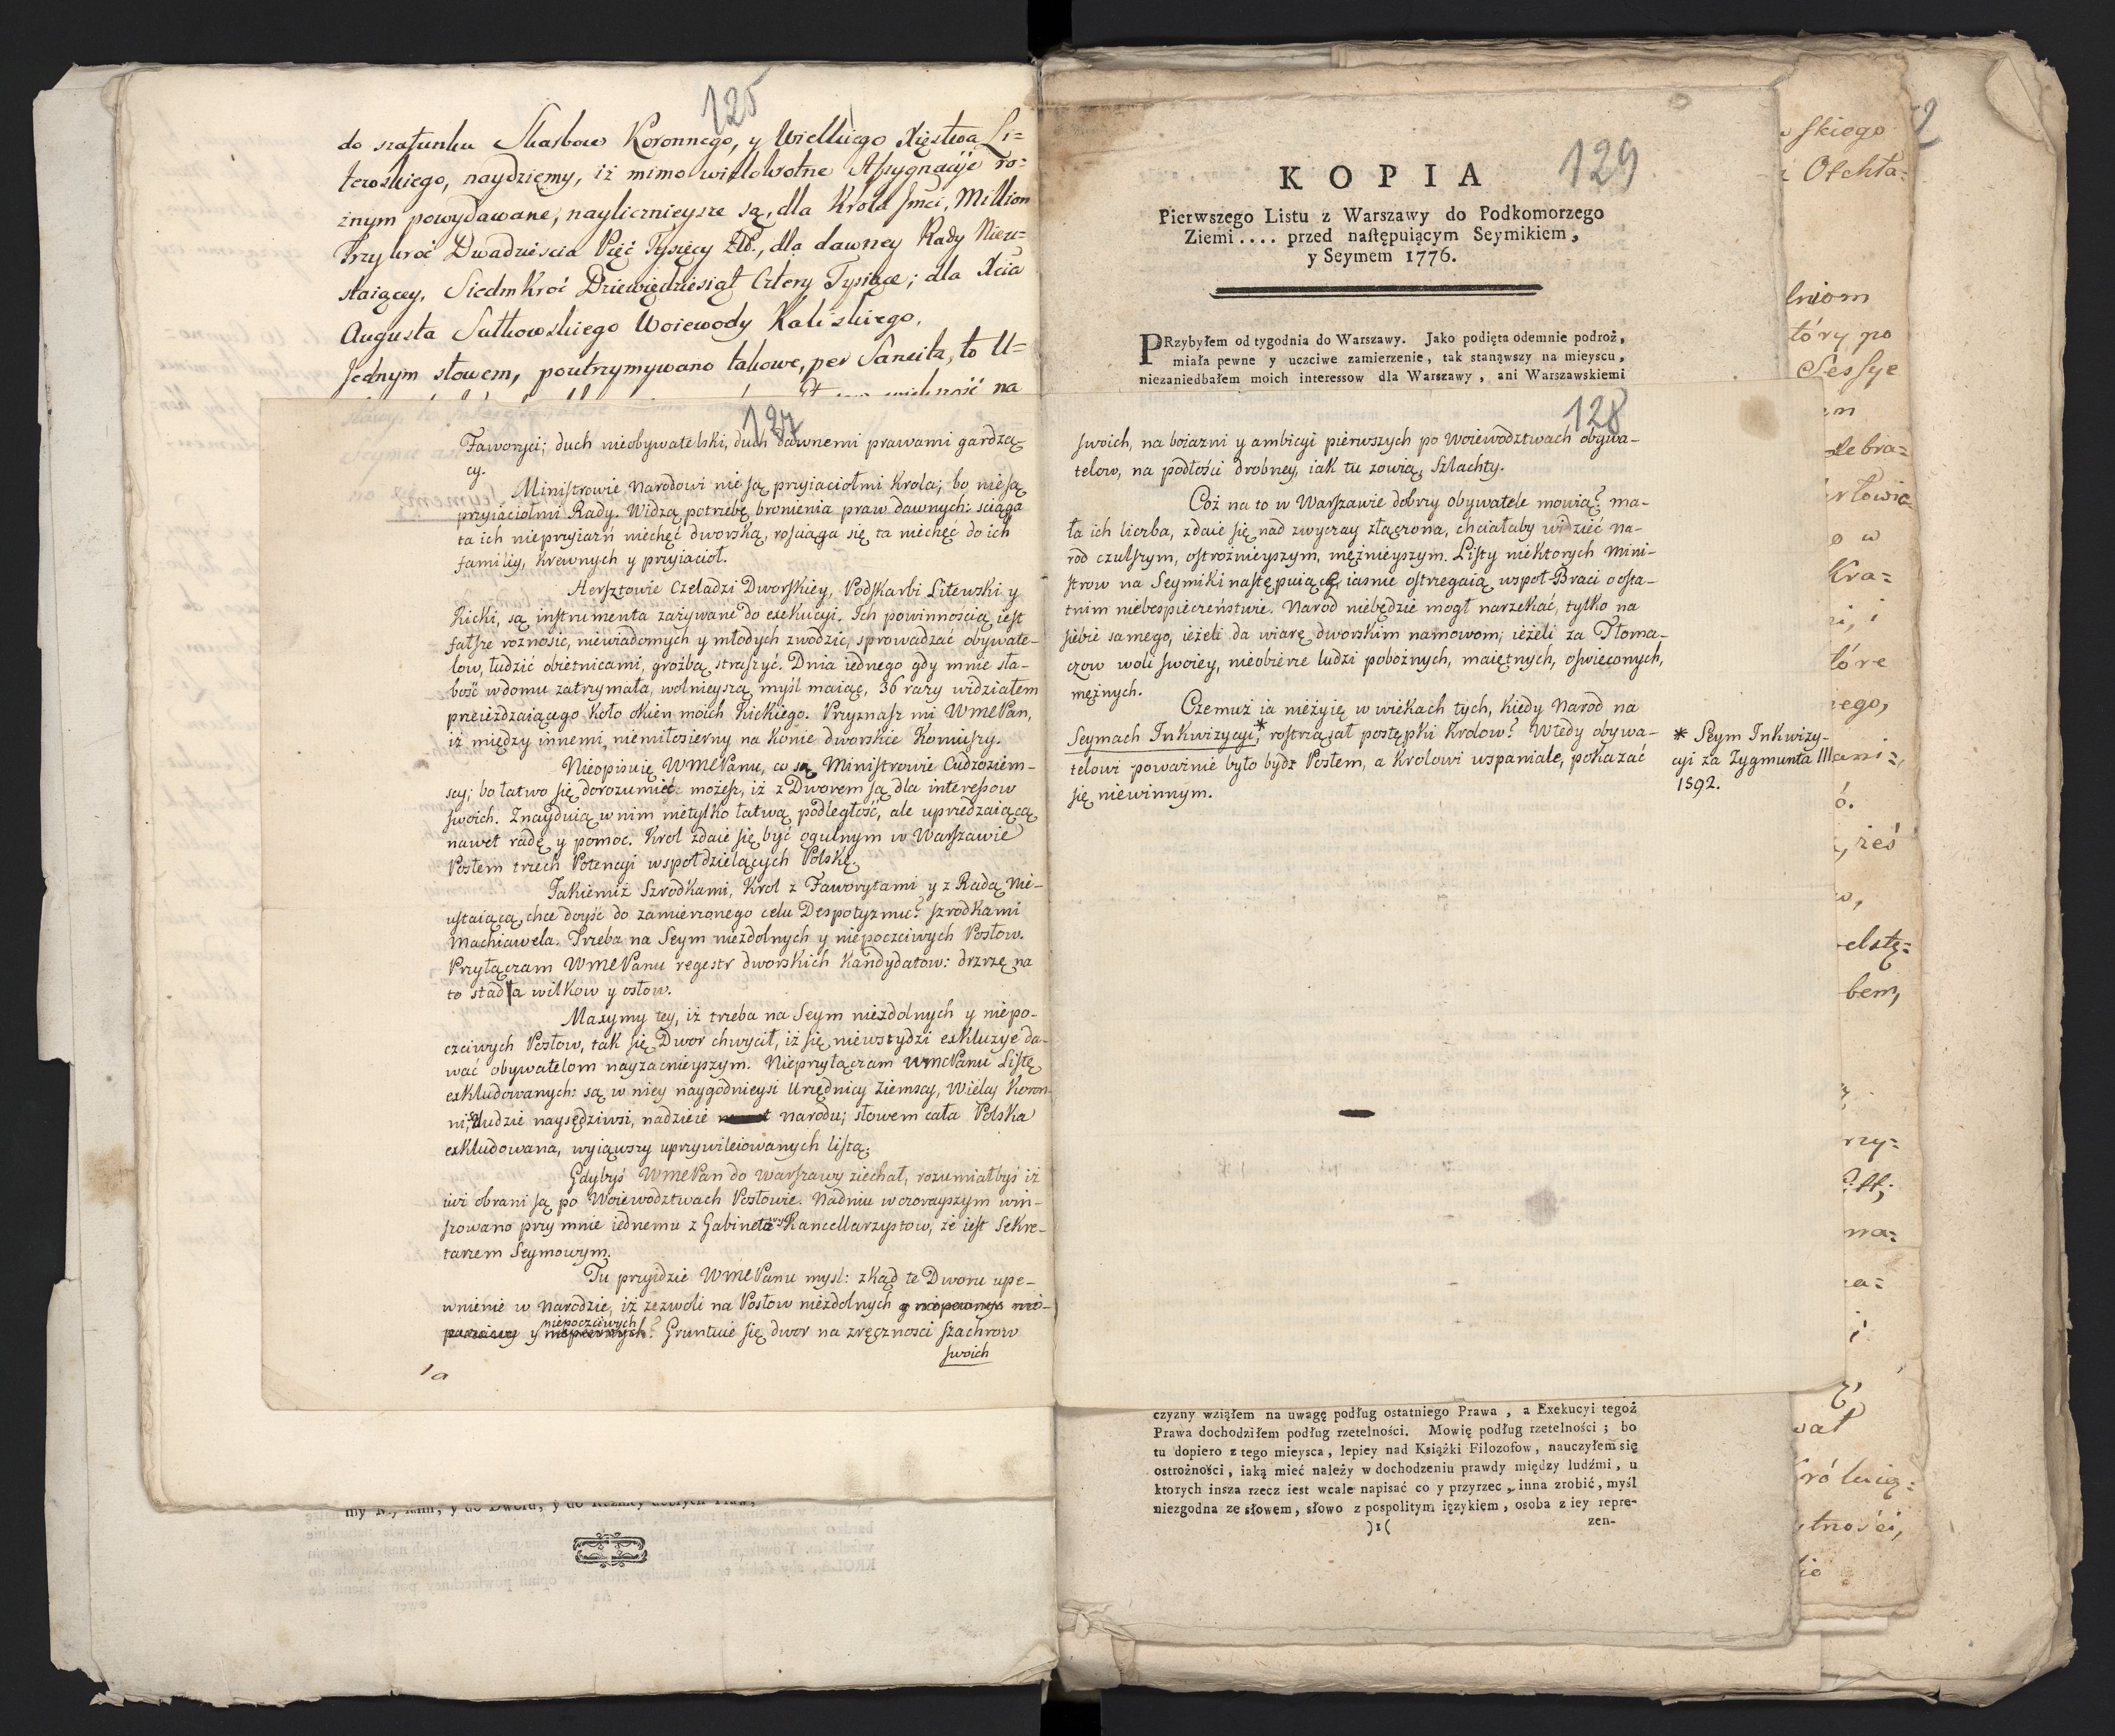 125
do szafunku Skarbow Koronnego, y Wielkiego Xięstwa Li=
tewskiego, naydziemy, iż mimo widłowolne Assygnacyje ro=
żnym powydawane, naylicznieysze są, dla Krola Jmci, Million
Trzykroć Dwadzieścia Pięć Tysięcy Złł., dla dawney Rady Nieu=
staiącey, Siedmkroć Dziewiędziesiąt Cztery Tysiące; dla Xcia
Augusta Sułkowskiego Woiewody Kaliskiego.
Jednym słowem, poutrzymywano takowe, per Sancita, to U=
na
127
Faworyci; duch nieobywatelski, duch dawnemi prawami gardzą-
cy.
Ministrowie Narodowi nie są przyiaciołmi Krola; bo nie są
przyiaciołmi Rady. Widzą potrzebę bronienia praw dawnych: sciąga
ta ich nieprzyiaźń niechęć dworską, rosciąga się ta niechęć do ich
familiy, krewnych y przyiacioł.
Hersztowie Czeladzi Dworskiey, Podskarbi Litewski y
Kicki, są instrumenta zażywane do exekucyi. Ich powinnością iest
fałsze roznosic, niewiadomych y młodych zwodzic, sprowadzać obywate-
low, łudzić obietnicami, groźbą straszyć. Dnia iednego gdy mnie sła-
bość w domu zatrzymała, wolnieyszą myśl maiąc, 36 razy widziałem
przeieżdzaiącego koło okien moich Kickiego. Przyznasz mi WMCPan,
iż między innemi, niemiłosierny na Konie dworskie Koniuszy.
Nieopisuię WMCPanu, co są Ministrowie Cudzoziem-
scy; bo łatwo się dorozumieć możesz, iż z Dworem są dla interessow
swoich. Znayduią w nim nietylko łatwą podległość, ale uprzedzaiącą
nawet radę y pomoc. Krol zdaie się być ogulnym w Warszawie
Posłem trzech Potencyi wspołdzielących Polskę.
Jakiemiż Szrodkami, Krol z Faworytami y z Radą Nie-
ustaiącą, chce doyść do zamierzonego celu Despotyzmu? szrodkami
Machiawela. Trzeba na Seym niezdolnych y niepoczciwych Posłow.
Przyłączam WMCPanu regestr dworskich Kandydatow: drzrzę na
to stada wilkow y osłow.
Maxymy tey, iż trzeba na Seym niezdolnych y niepo-
czciwych Posłow, tak się Dwor chwycił, iż się niewstydzi exkluzyje da-
wać obywatelom nayzacnieyszym. Nieprzyłączam WMCPanu Listę
exkludowanych: są w niey naygodnieysi Urzędnicy Ziemscy, Wielcy Koron-
ni, ludzie naysędziwsi, nadzieie narodu; słowem cała Polska
exkludowana, wyiąwszy uprzywileiowanych listą.
Gdybyś WMCPan do Warszawy ziechał, rozumiałbyś iż
iuż obrani są po Woiewodztwach Posłowie. Nadniu wczorayszym win-
szowano przy mnie iednemu z Gabinetowych Kancellarzystow, że iest Sekre-
tarzem Seymowym.
Tu przyidzie WMCPanu mysl: zkąd te Dworu upe-
wnienie w Narodzie, iż zezwoli na Posłow niezdolnych
y niepoczciwych? Gruntuie się dwor na zręcznosci szachrow
swoich
1a
128
swoich, na boiazni y ambicyi pierwszych po Woiewodztwach obywa-
telow, na podłości drobney, iak tu zowią, Szlachty.
Coż na to w Warszawie dobrzy Obywatele mowią? ma-
ła ich liczba, zdaie się nad zwyczay złączona, chciałaby widzieć na-
rod czulszym, ostrożnieyszym, mężnieyszym. Listy niektorych Mini-
strow na Seymiki następuiące, iasnie ostrzegaią wspoł-Braci o osta-
tnim niebespieczeństwie. Narod niebędzie mogł narzekać, tylko na
siebie samego, ieżeli da wiarę dworskim namowom; ieżeli za Tłoma-
czow woli swoiey, nieobierze ludzi pobożnych, maiętnych, oswieconych,
mężnych.
Czemuż ia nieżyię w wiekach tych, kiedy Narod na
Seymach Inkwizycyi,* rostrząsał postępki Krolow? Wtedy obywa-
telowi poważnie było bydz Posłem, a Krolowi wspaniale, pokazać
się niewinnym.
* Seym Inkwizy-
cyi za Zygmunta III
1592.
129
KOPIA
Pierwszego Listu z Warszawy do Podkomorzego
Ziemi .... przed następuiącym Seymikiem,
y Seymem 1776.
PRzybyłem od tygodnia do Warszawy. Jako podięta odemnie podroż,
miała pewne y uczciwe zamierzenie, tak stanąwszy na mieyscu,
niezaniedbałem moich interessow dla Warszawy, ani Warszawskiemi
czyzny wziąłem na uwagę podług ostatniego Prawa, a Exekucyi tegoż
Prawa dochodziłem podług rzetelności. Mowię podług rzetelności; bo
tu dopiero z tego mieysca, lepiey nad Książki Filozofow, nauczyłem się
ostrożności, iaką mieć należy w dochodzeniu prawdy między ludźmi, u
ktorych insza rzecz iest wcale napisać co y przyrzec, inna zrobić, myśl
niezgodna ze słowem, słowo z pospolitym ięzykiem, osoba z iey repre-
)1(
zen-
skiego
Otchła=
lniom
tóry po
Sessye
zebra=
w
Kra=
i
tóre
iego,
ó.
ześ
bem,
rzy=
wa=
i
tności,